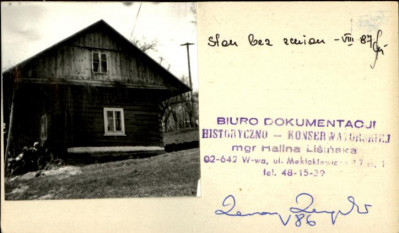 Stan bez zmian - VIII 87
BIURO DOKUMENTACJI
HISTORYCZNO - KONSERWATORSKIEJ
mgr Halina Lisińska
02-642 W-wa, ul.
tel. 48-15-39
V 86